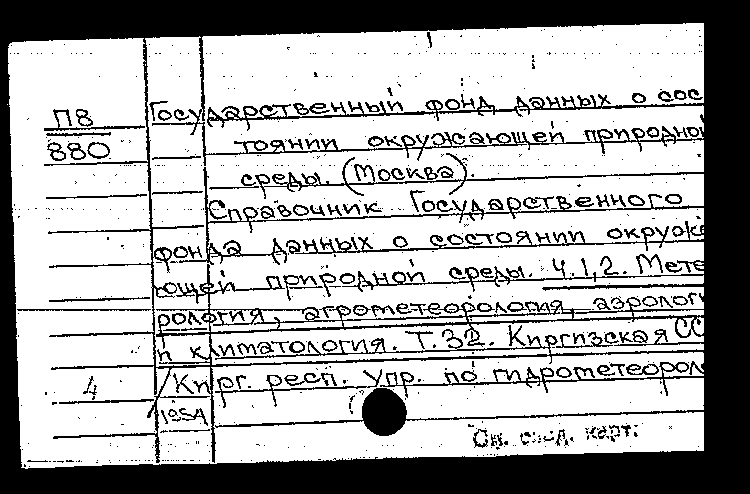 П8 Государственный фонд данных о сос
880 тоянии окружающей природной
среды. (Москва).
Справочник Государственного
фонда данных о состоянии окружа
ющей природной среды. Ч.1,2. Мете
рология, агрометеорология, аэрологи
и климатология. Т.32. Киргизская СС
4 /Кирг. респ. Упр. по гидрометеорол
См. след. карт.